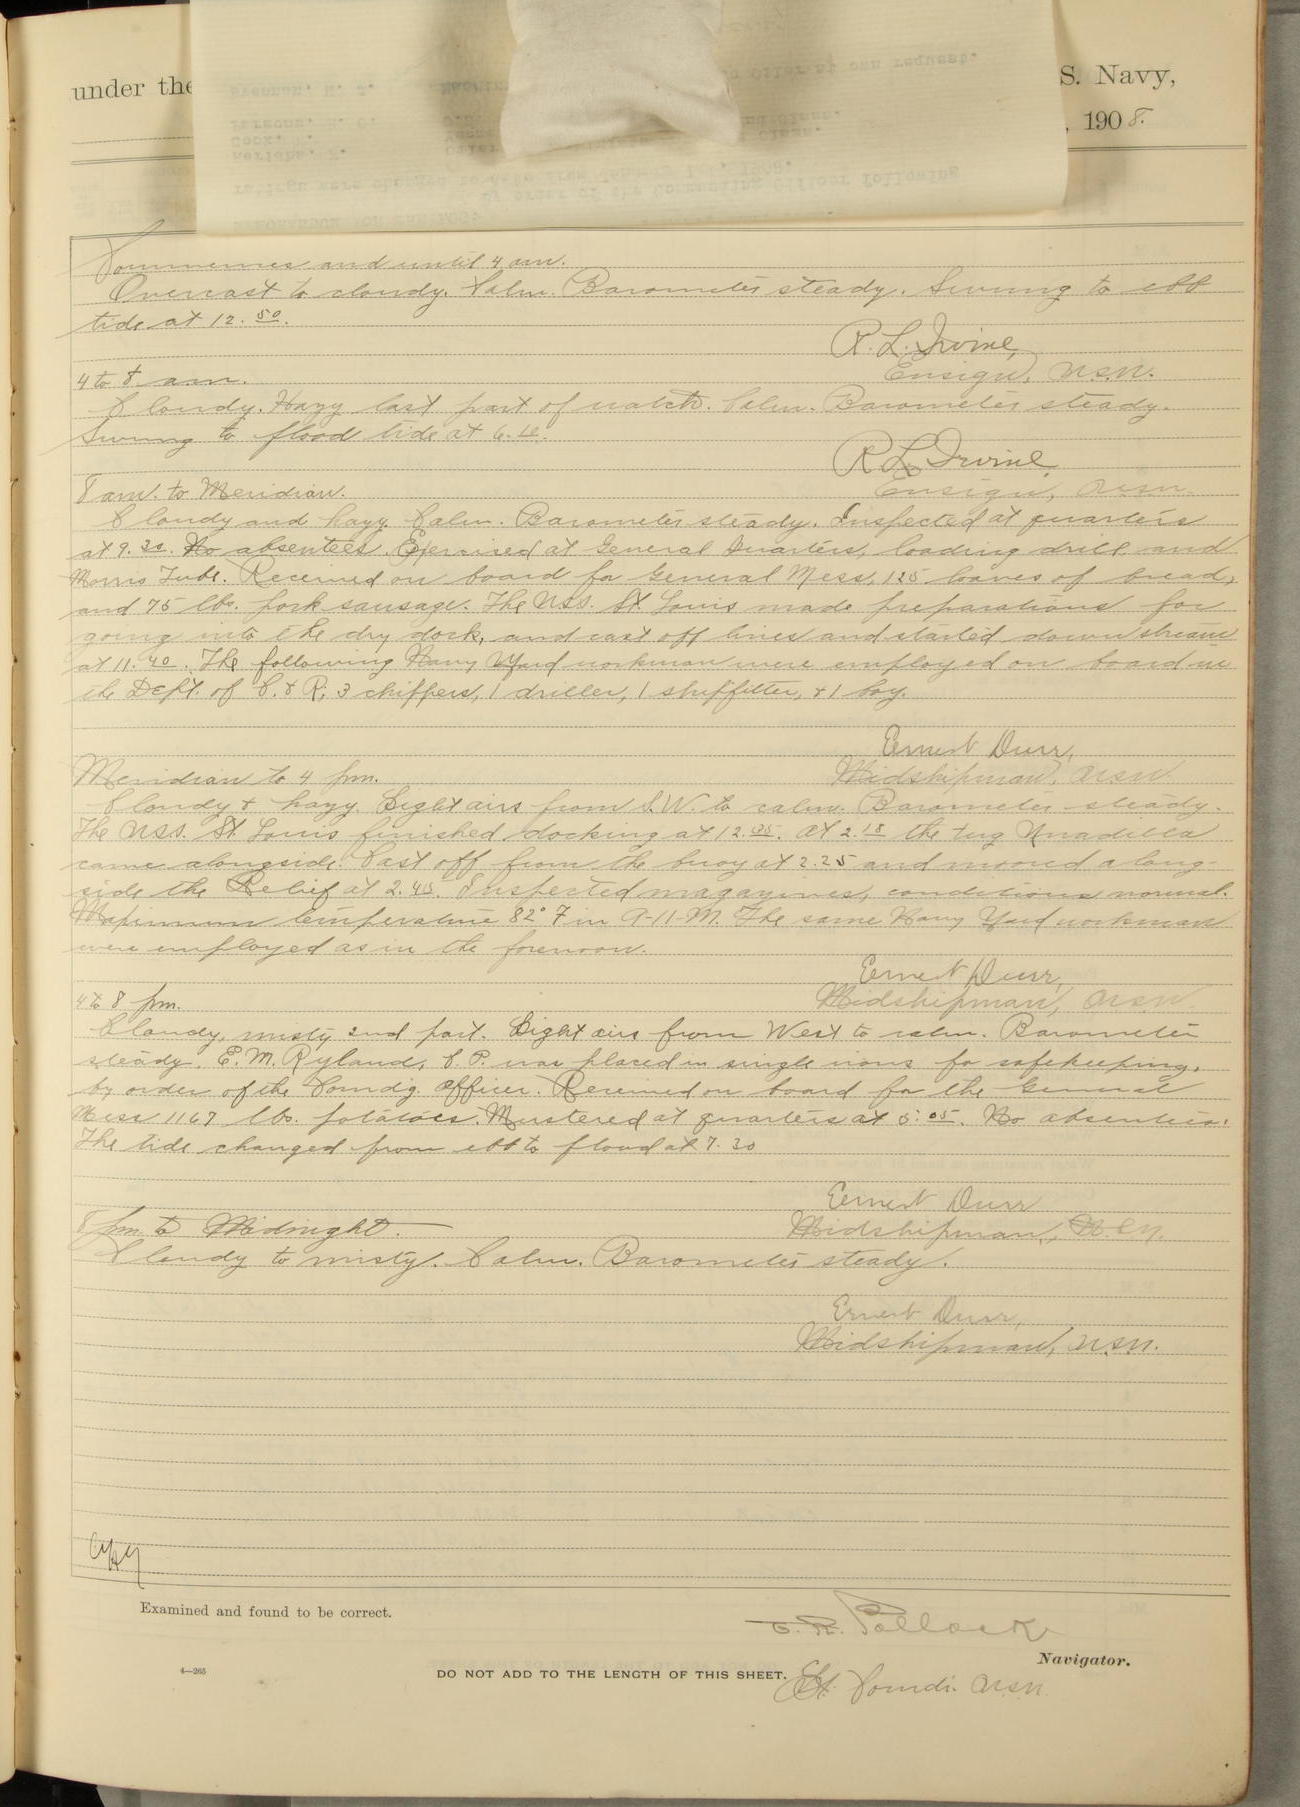 under the
S. Navy,
, 1908.
Commences and until 4 am.
Overcast to cloudy. Calm. Barometer steady. Swung to ebb
tide at 12.50.
R. L. Irvine,
Ensign, U.S.N.
4 to 8 am.
Cloudy. Hazy last part of watch. Calm. Barometer steady.
Swung to flood tide at 6.10.
R L Irvine,
Ensign, USN.
8 am. to Meridian.
Cloudy and hazy. Calm. Barometer steady. Inspected at quarters
at 9.30. No absentees. Exercised at General Quarters, loading drill and
Morris Tube. Received on board for General Mess, 125 loaves of bread,
and 75 lbs. pork sausage. The USS. St. Louis made preparations for
going into the dry dock, and cast off lines and started down stream
at 11.40. The following Navy Yard workman were employed on board in
the Dept. of C. & R; 3 chippers, 1 driller, 1 shipfitter, & 1 boy.
Ernest Durr,
Midshipman, USN.
Meridian to 4 pm.
Cloudy & hazy. Light airs from S.W. to calm. Barometer steady.
The USS. St. Louis finished docking at 12.35. At 2.18 the tug Unadilla
came alongside. Cast off from the buoy at 2.25 and moored along-
side the Relief at 2.45. Inspected magazines, conditions normal.
Maximum temperature 82° F in 9-11-M. The same Navy Yard workman
were employed as in the forenoon.
Ernest Durr,
Midshipman, USN.
4 to 8 pm.
Cloudy, misty 2nd part. Light airs from West to calm. Barometer
steady. E. M. Ryland, C.P. was placed in single irons for safekeeping,
by order of the Comdg. Officer. Received on board for the General
Mess 1167 lbs. potatoes. Mustered at quarters at 5:05. No absentees.
The tide changed from ebb to flood at 7.30
Ernest Durr
Midshipman, U.S.N.
8 pm. to Midnight.
Cloudy to misty. Calm. Barometer steady.
Ernest Durr,
Midshipman, U.S.N.
Examined and found to be correct.
Pollock
Navigator.
4—265
DO NOT ADD TO THE LENGTH OF THIS SHEET.
Lt. Comdr. USN.